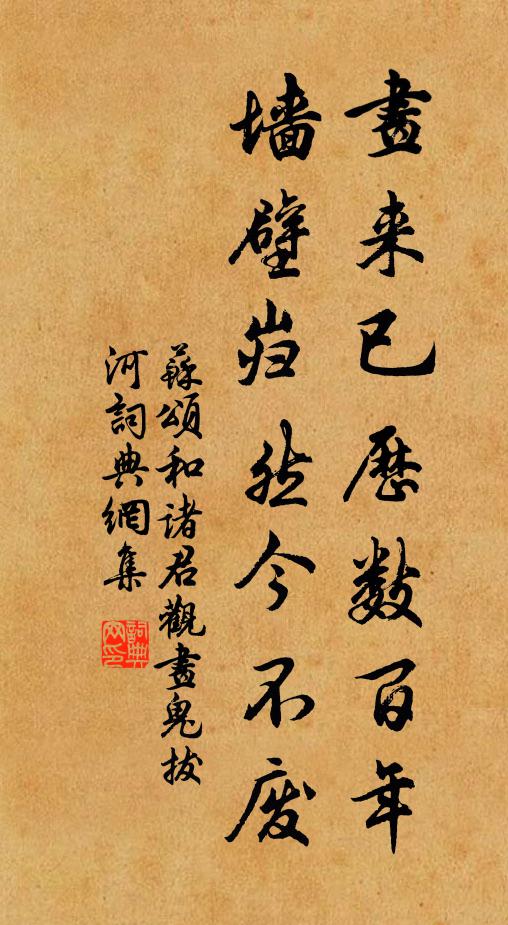 畫来已歷數百年
墙壁岿然今不废
蘇頌和诸君觀畫鬼拔
河詞典網集
詞典
网印